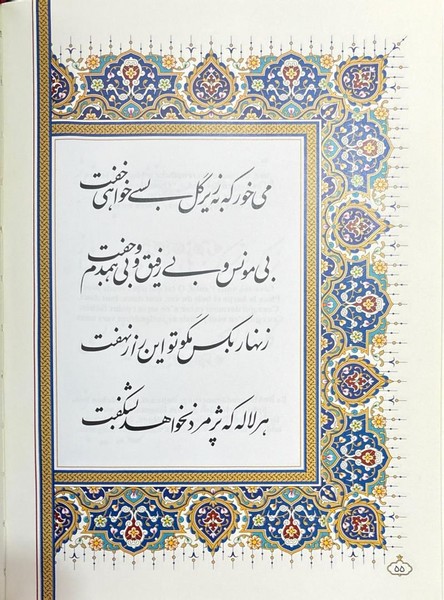 می خور که به زیر گل بسی خواهی خفت
بی مونس و بی رفیق و بی همدم و جفت
زنهار بکس مگو تو این راز نهفت
هر لاله که پژمرد نخواهد بشکفت
۵۵